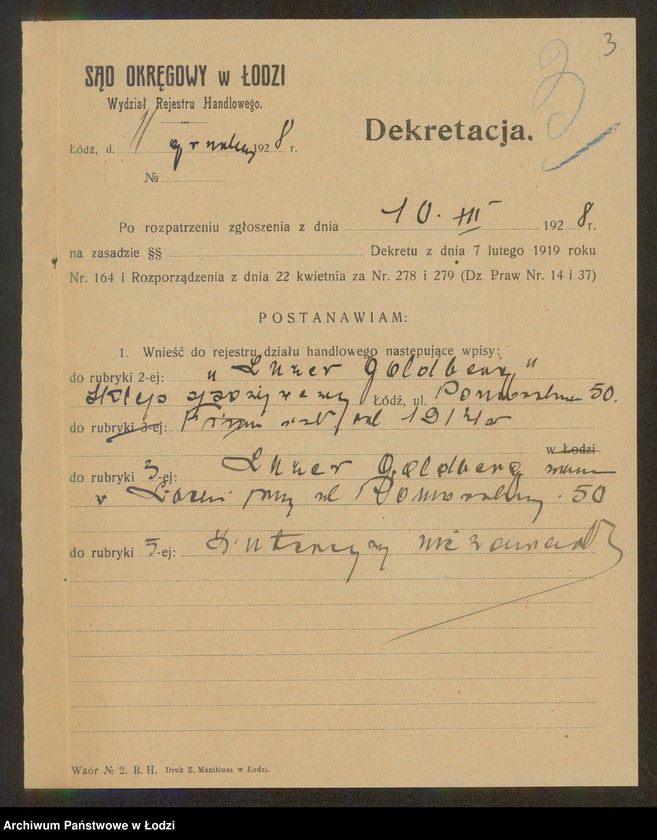 3
SĄD OKRĘGOWY w ŁODZI
Wydział Rejestru Handlowego.
Dekretacja.
Łódź, d. 11 grudnia 1928 r.
№
Po rozpatrzeniu zgłoszenia z dnia 10. III 1928 r.
na zasadzie §§ Dekretu z dnia 7 lutego 1919 roku
Nr. 164 i Rozporządzenia z dnia 22 kwietnia za Nr. 278 i 279 (Dz. Praw Nr. 14 i 37)
POSTANAWIAM:
1. Wnieść do rejestru działu handlowego następujące wpisy:
do rubryki 2-ej: „Luzer Goldberg"
Sklep spożywczy Łódź, ul. Pomorska 50.
do rubryki 3-ej: Firma istn. od 1914 r
w Łodzi
do rubryki 3-ej: Luzer Goldberg zam.
w Łodzi przy ul Pomorskiej 50
do rubryki 5-ej: Intercyzy nie zawarł
Wzór № 2. R. H. Druk Z. Manitiusa w Łodzi.
Archiwum Państwowe w Łodzi